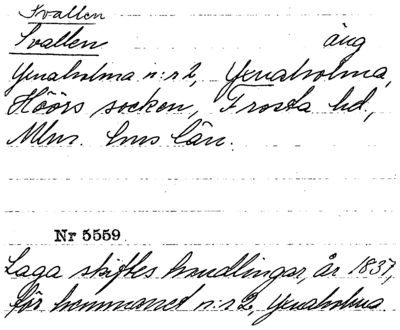 Svallen
Svallen äng
Yxnaholma n:r 2, Yxnaholma,
Höörs socken, Frosta hd.,
Mlm. hus län.
Nr 5559
Laga skiftes handlingar, år 1837,
för hemmanet n:r 2, Yxnaholma